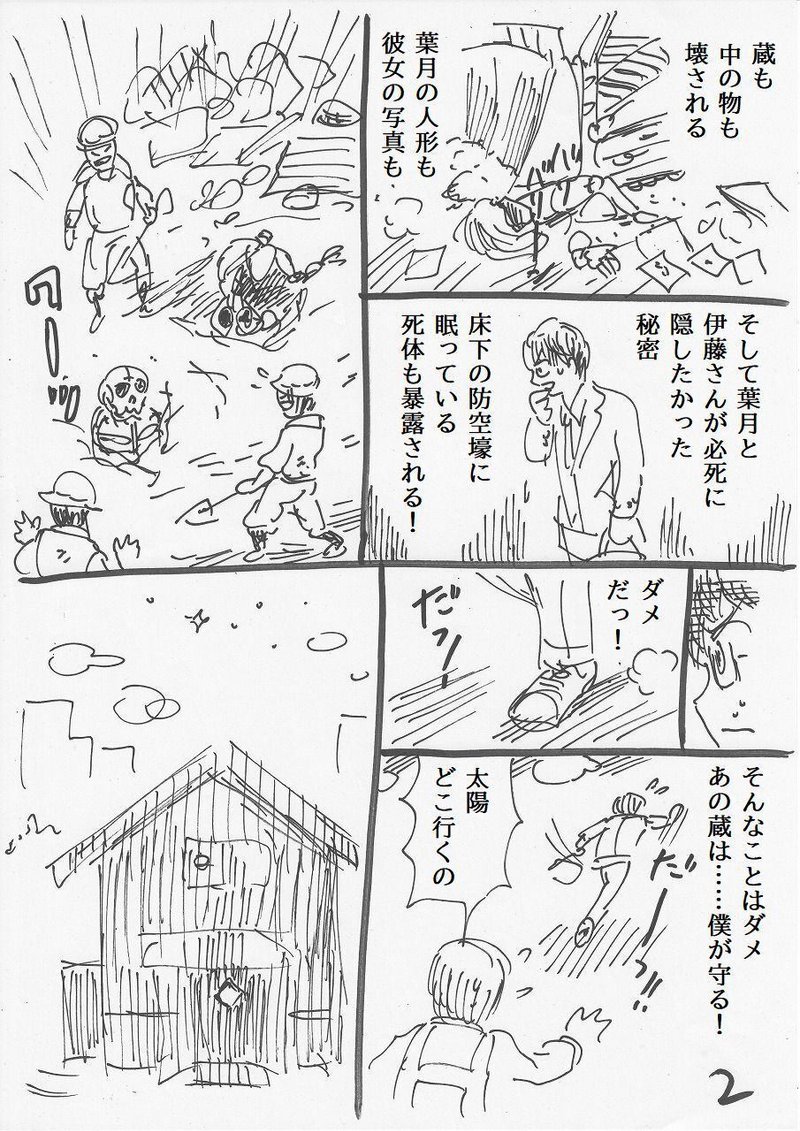 蔵も
中の物も
壊される
葉月の人形も
彼女の写真も
そして葉月と
伊藤さんが必死に
隠したかった
秘密
床下の防空壕に
眠っている
死体も暴露される！
ダメ
だっ！
だっ！
そんなことはダメ
あの蔵は……僕が守る！
だーっ!!
太陽
どこ行くの
2